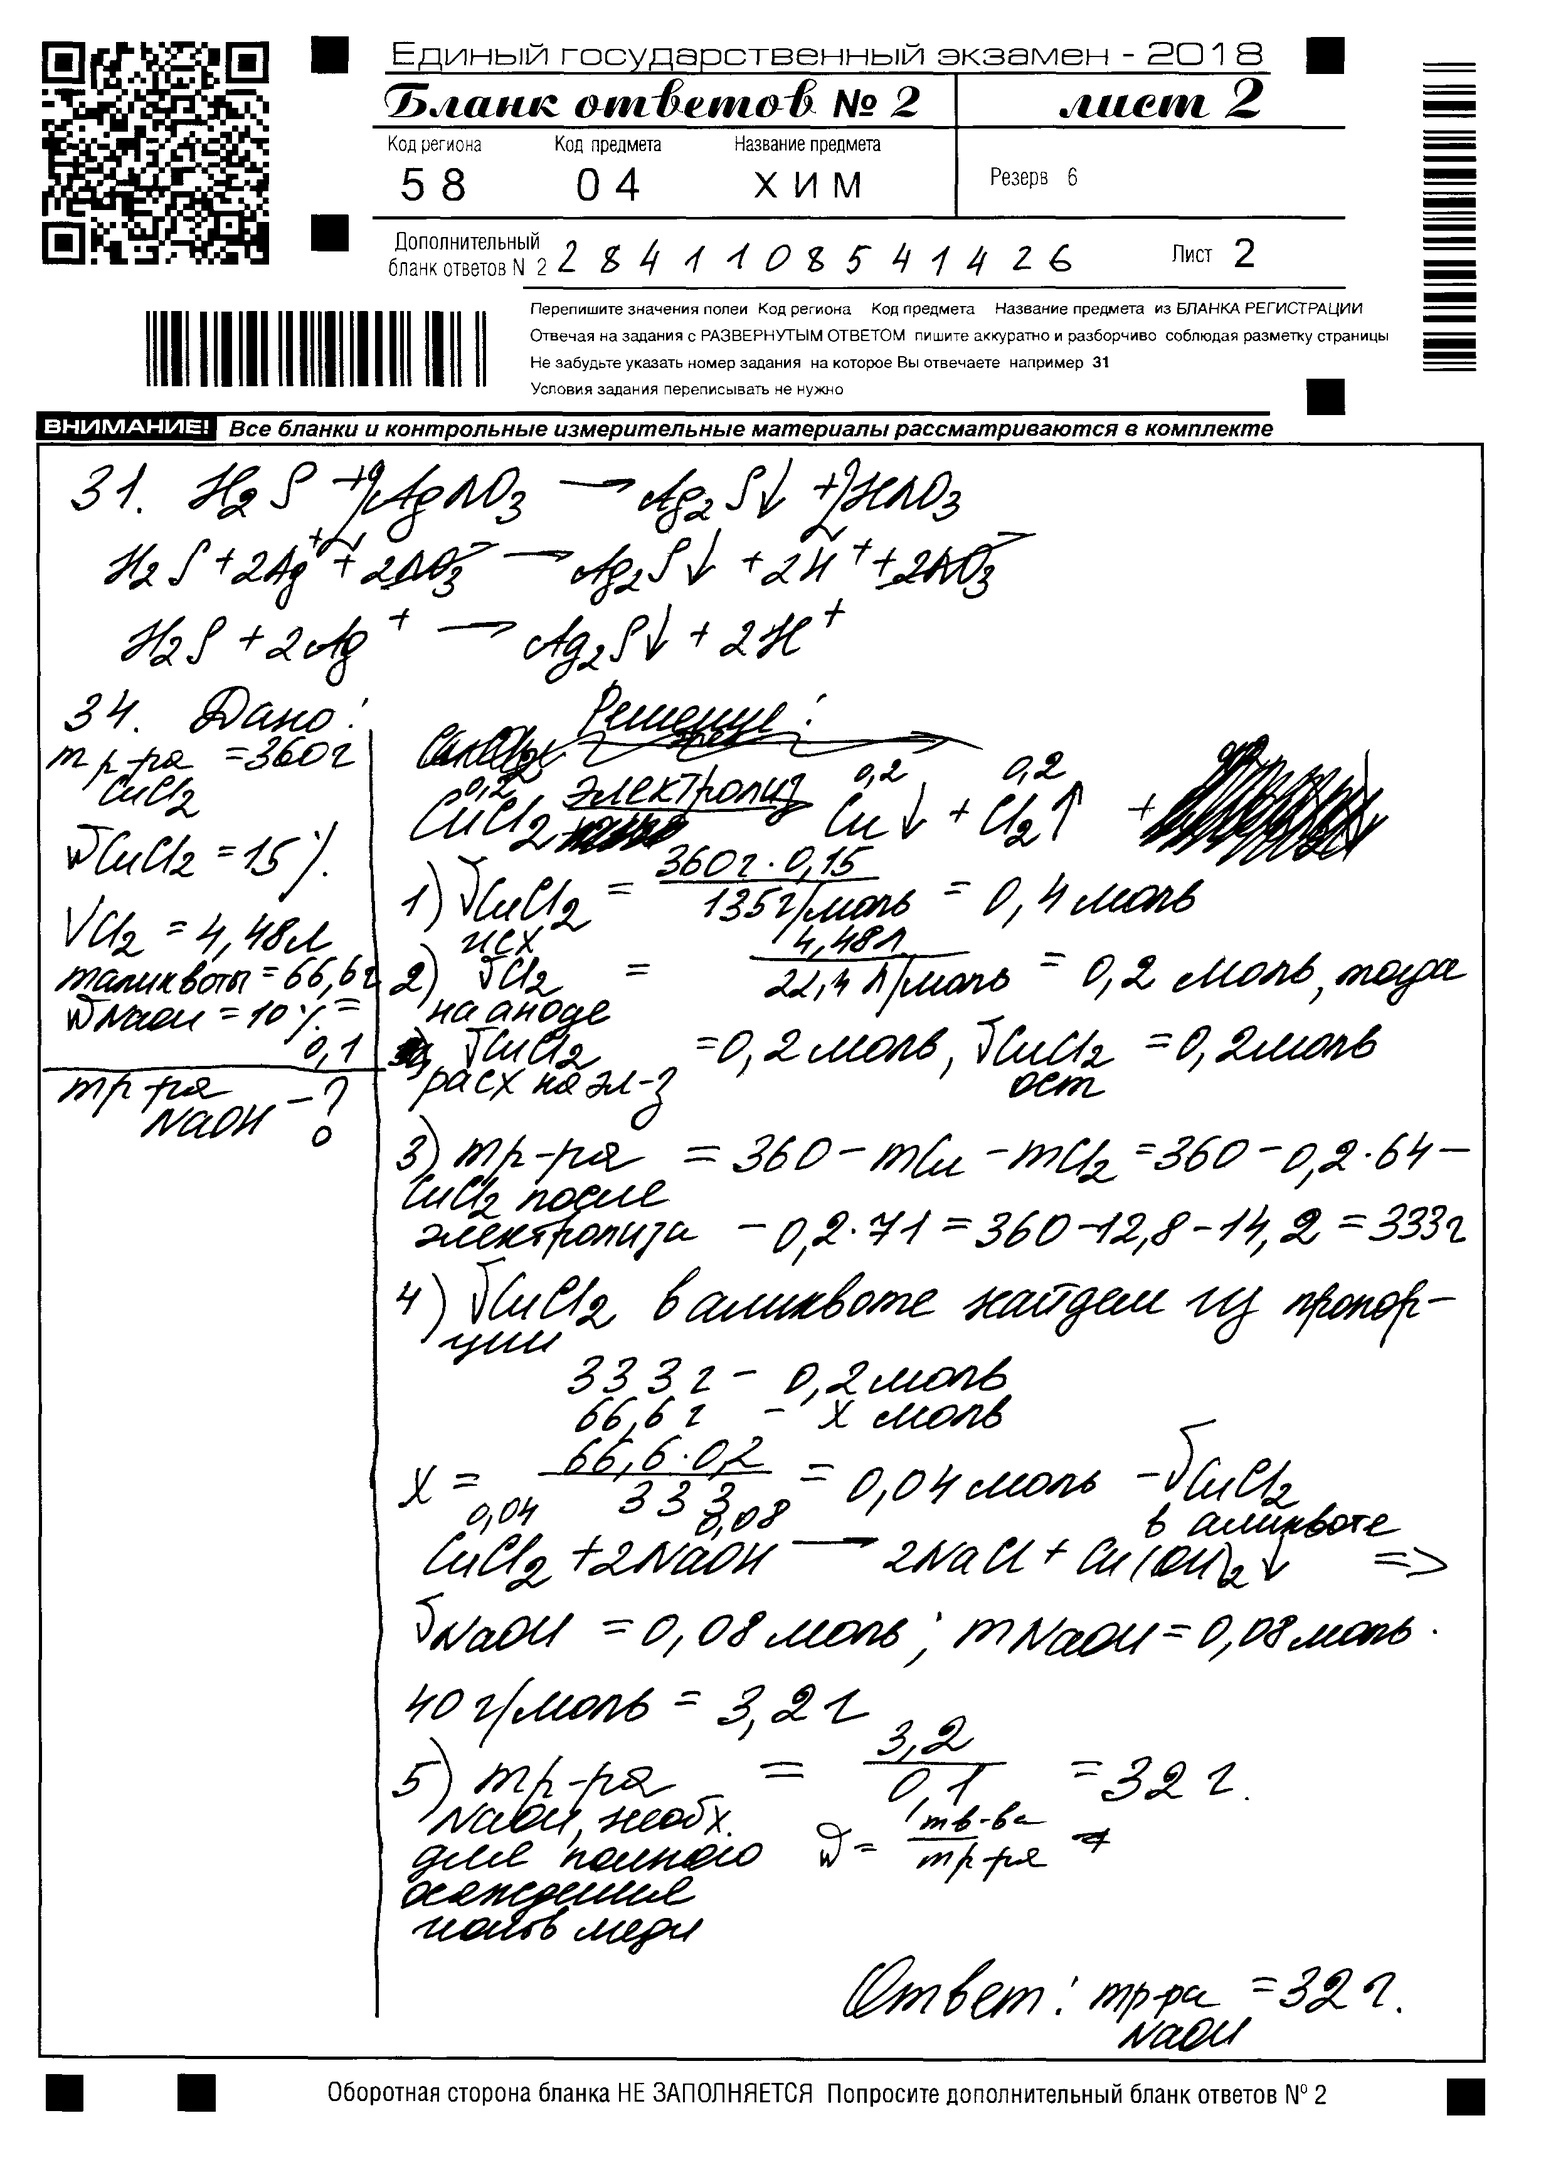 Единый государственный экзамен - 2018
Бланк ответов № 2 лист 2
Код региона Код предмета Название предмета
58 04 ХИМ Резерв 6
Дополнительный бланк ответов N 2 2841108541426 Лист 2
Перепишите значения полеи Код региона Код предмета Название предмета из БЛАНКА РЕГИСТРАЦИИ
Отвечая на задания с РАЗВЕРНУТЫМ ОТВЕТОМ пишите аккуратно и разборчиво соблюдая разметку страницы
Не забудьте указать номер задания на которое Вы отвечаете например 31
Условия задания переписывать не нужно
ВНИМАНИЕ! Все бланки и контрольные измерительные материалы рассматриваются в комплекте
31. H2S + 2AgNO3 → Ag2S↓ + 2HNO3
H2S + 2Ag+ + 2NO3- → Ag2S↓ + 2H+ + 2NO3-
H2S + 2Ag+ → Ag2S↓ + 2H+
34. Дано:
mр-ра CuCl2 = 360г
ωCuCl2 = 15%
VCl2 = 4,48л
mаликвоты = 66,6г
ωNaOH = 10% = 0,1
mр-ра NaOH - ?
Решение:
0,2 0,2 0,2
CuCl2 электролиз Cu↓ + Cl2↑ +
1) νCuCl2 исх = 360г · 0,15 / 135г/моль = 0,4 моль
2) νCl2 на аноде = 4,48л / 22,4 л/моль = 0,2 моль, тогда
νCuCl2 расх на эл-з = 0,2 моль, νCuCl2 ост = 0,2моль
3) mр-ра CuCl2 после электролиза = 360 - mCu - mCl2 = 360 - 0,2 · 64 -
- 0,2 · 71 = 360 - 12,8 - 14,2 = 333г
4) νCuCl2 в аликвоте найдем из пропор-
ции
333г - 0,2моль
66,6г - x моль
x = 66,6 · 0,2 / 333 = 0,04 моль - νCuCl2 в аликвоте
0,04 0,08
CuCl2 + 2NaOH → 2NaCl + Cu(OH)2↓ =>
νNaOH = 0,08 моль; mNaOH = 0,08моль ·
40 г/моль = 3,2 г
5) mр-ра NaOH, необх. для полного осаждения ионов меди = 3,2 / 0,1 = 32 г.
ω = mв-ва / mр-ра
Ответ: mр-ра NaOH = 32 г.
Оборотная сторона бланка НЕ ЗАПОЛНЯЕТСЯ Попросите дополнительный бланк ответов № 2